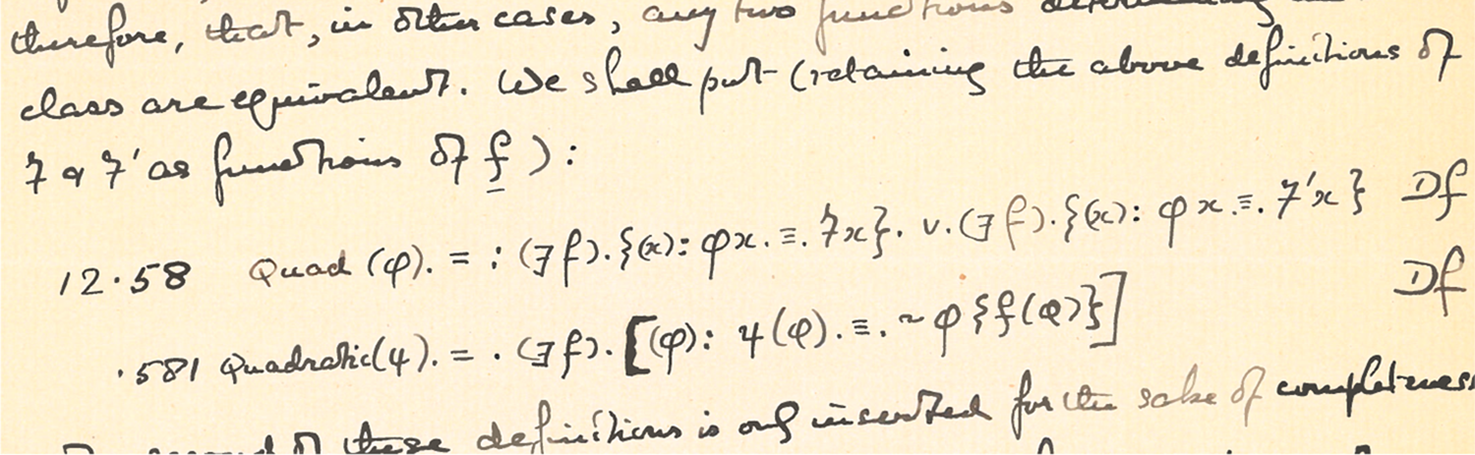 therefore, that, in other cases, any two functions determining
class are equivalent. We shall put (retaining the above definitions of
7 & 7′ as functions of f):
12·58 Quad (φ). = : (∃f).{(x): φx.≡.7x}. v.(∃f).{(x): φx.≡.7′x} Df
·581 Quadratic(ψ). = . (∃f).[(φ): ψ(φ).≡.~φ{f(φ)}] Df
second of these definitions is only inserted for the sake of completeness